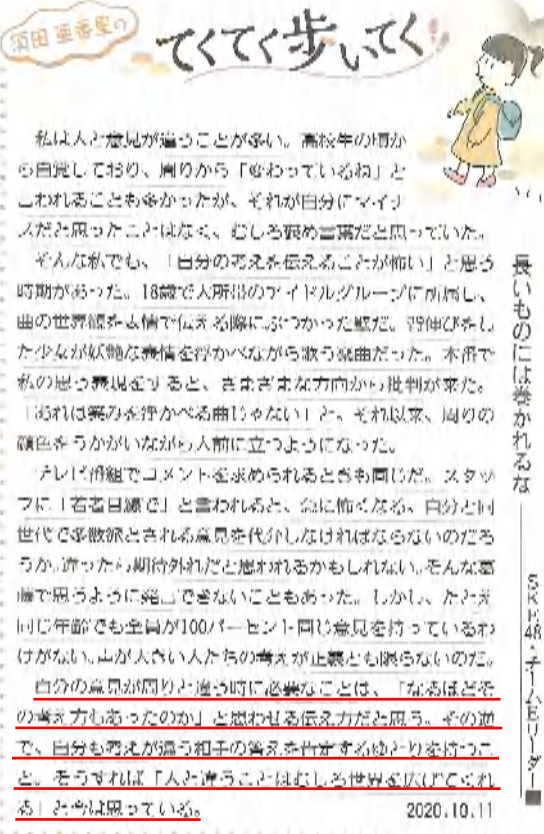 須田亜香里の
てくてく歩いてく
長いものには巻かれるな
SKE48・チームEリーダー
私は人と意見が違うことが多い。高校生の頃か
ら自覚しており、周りから「変わっているね」と
言われることも多かったが、それが自分にマイナ
スだと思ったことはなく、むしろ褒め言葉だと思っていた。
そんな私でも、「自分の考えを伝えることが怖い」と思う
時期があった。18歳で大所帯のアイドルグループに所属し、
曲の世界観を表情で伝える際にぶつかった壁だ。背伸びをし
た少女が妖艶な表情を浮かべながら歌う楽曲だった。本番で
私の思う表現をすると、さまざまな方向から批判が来た。
「あれは笑みを浮かべる曲じゃない」と。それ以来、周りの
顔色をうかがいながら人前に立つようになった。
テレビ番組でコメントを求められるときも同じだ。スタッ
フに「若者目線で」と言われると、急に怖くなる。自分と同
世代で多数派とされる意見を代弁しなければならないのだろ
うか。違ったら期待外れだと思われるかもしれない。そんな葛
藤で思うように発言できないこともあった。しかし、たとえ
同じ年齢でも全員が100パーセント同じ意見を持っているわ
けがない。声が大きい人たちの考えが正義とも限らないのだ。
自分の意見が周りと違う時に必要なことは、「なるほどそ
の考え方もあったのか」と思わせる伝え方だと思う。その逆
で、自分も考えが違う相手の答えを肯定するゆとりを持つこ
と。そうすれば「人と違うことはむしろ世界を広げてくれ
る」と今は思っている。
2020.10.11